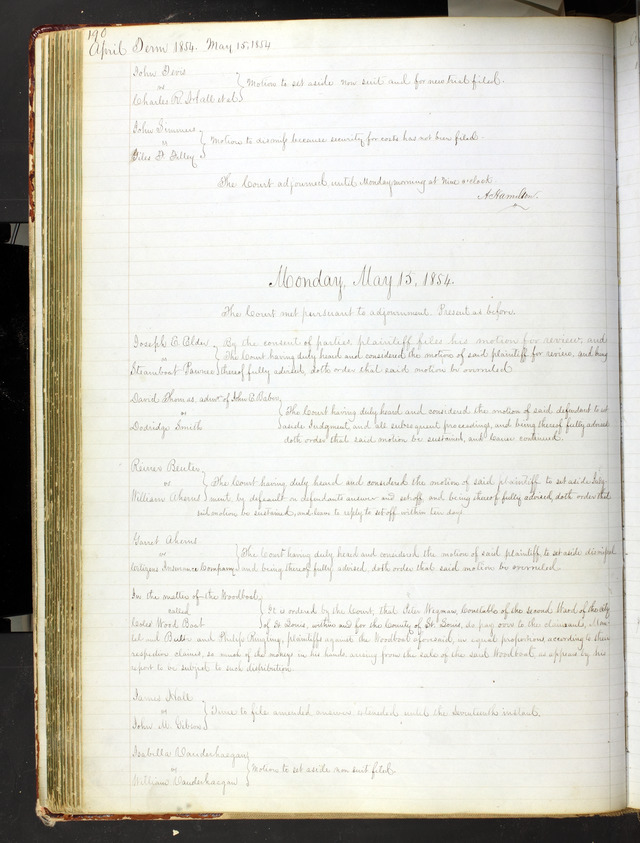 190
April Term 1854. May 15, 1854
John Devis
vs } Motion to set aside non suit and for new trial filed.
Charles R. Hall et al
John Simmers
vs } Motion to dismiss because security for costs has not been filed
Giles F. Filley
The Court adjourned until Monday morning at nine o'clock
A. Hamilton.
Monday, May 15, 1854.
The Court met pursuant to adjournment. Present as before.
Joseph C. } By the consent of parties plaintiff files his motion for review, and
vs } The Court having duly heard and considered the motion of said plaintiff for review, and being
Steamboat Pawnee } thereof fully advised, doth order that said motion be overruled
David Thomas admr. of John C.
vs } The Court having duly heard and considered the motion of said defendant to set
Dodridge Smith } aside Judgment, and all subsequent proceedings, and being thereof fully advised
doth order that said motion be sustained, and cause continued.
vs } The Court having duly heard and considered the motion of said plaintiff to set aside Judg-
William Ahrens } ment by default on defendants answer and set off, and being thereof fully advised, doth order that
said motion be sustained, and leave to reply to set off within ten days
Garret Ahrens
vs } The Court having duly heard and considered the motion of said plaintiff, to set aside dismissal
Citizens Insurance Company } and being thereof fully advised, doth order that said motion be overruled
In the matter of the Woodboat
called } It is ordered by the Court, that Peter Wegman, Constable of the Second Ward of the City
Coles Wood Boat } of St. Louis, within and for the County of St. Louis, do pay over to the claimants,
and Philip plaintiffs against the Woodboat aforesaid, in equal proportions, according to their
respective claims, so much of the moneys in his hands, arising from the sale of the said Woodboat, as appears by his
report to be subject to such distribution.
James Hall
vs } Time to file amended answer, extended until the seventeenth instant.
John M.
Isabella Vanderhaegan
vs } Motion to set aside non suit filed.
William Vanderhaegan